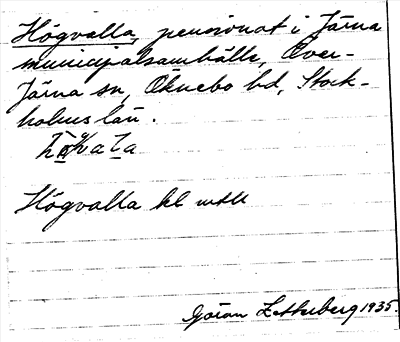 Högvalla, pensionat i Järna
municipalsamhälle, Över-
Järna sn, Öknebo hd, Stock-
holms län.
Högvalla kl
Göran Zetterberg 1935.